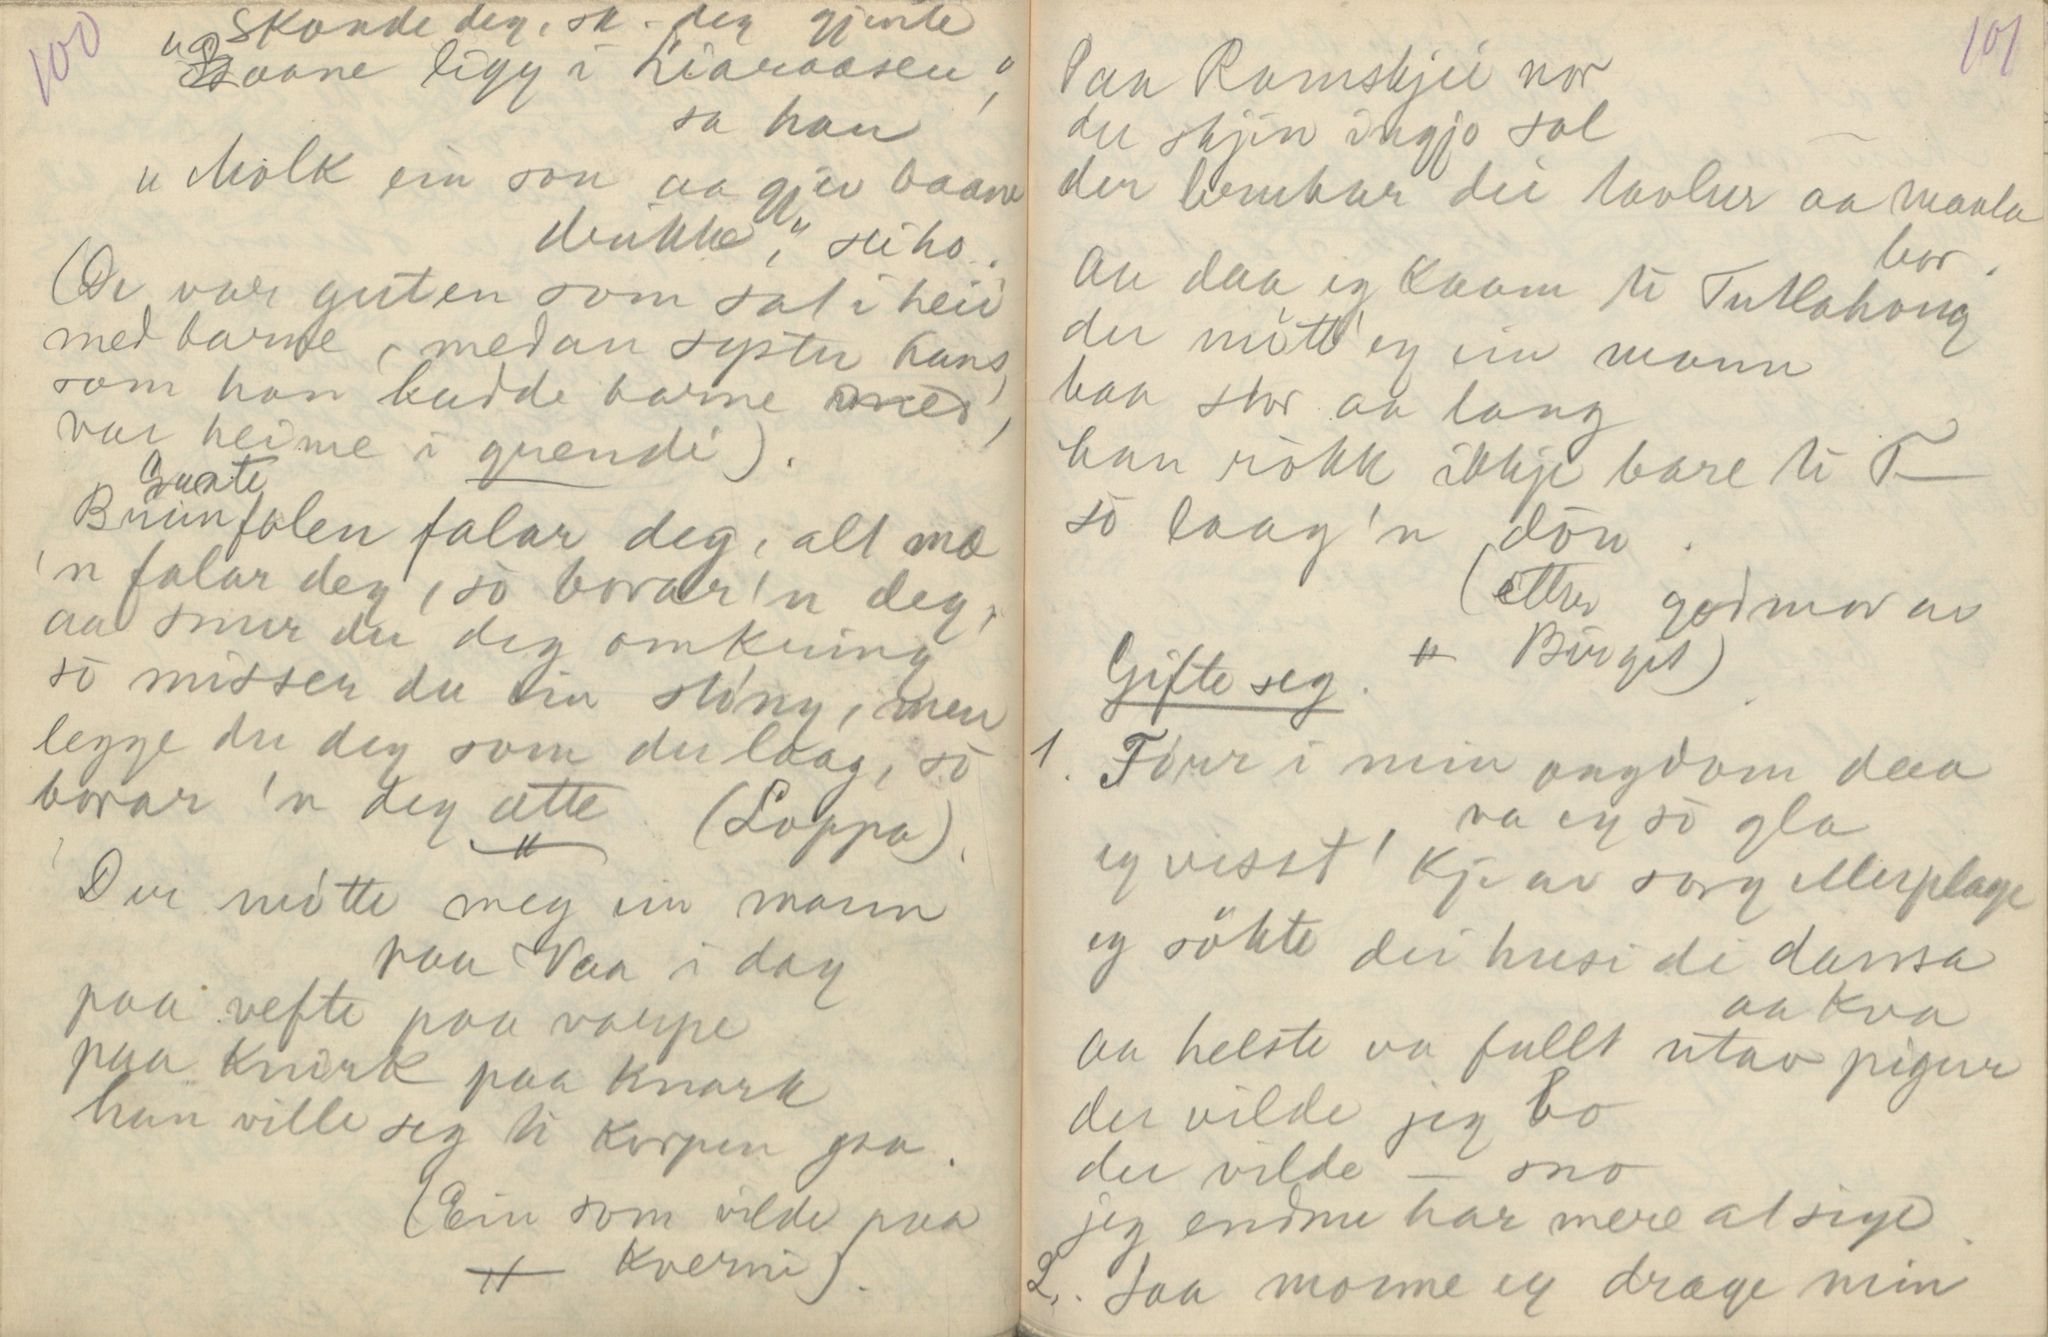 100
Skonde deg, sa - deg gjente
"Baane ligg i Liaraasen,"
sa han
"Molk ein son aa gjev baane
drikke," sei ho.
(De var guten som sat i heii
med barne, medan syster hans,
som han hadde barne med,
var heime i grendi).
Svarte
Brunfolen folar deg, alt mæ
'n folar deg, so borar 'n deg,
aa snur du deg omkring
so misser du ein sting, men
legge du deg som du laag, so
borar 'n deg atte (Loppa).
"
Der mötte meg ein mann
paa Vaa i dag
paa vefte paa varpe
paa Knirk paa Knark
han ville seg ti Korpen gaa.
(Ein som vilde paa
" Kverni).
101
Paa Ramskjei nor
der skjin ingjo sol
der
dei
aa maala
bor.
aa daa eg kaam ti Tutlahaug
der mött' eg ein mann
baa stor aa lang
han rökk ikkje bare ti T—
so laag 'n döu.
(etter godmor av
" Birgit)
Gifte seg.
1. Förr i min ongdom daa
va eg so gla
eg visst' Kje av sorg eller plage
eg sökte dei husi di dansa
aa Kva
aa helste va fullt utav pigur
der vilde jeg bo
der vilde — sno
jeg endnu har mere at sige.
2. Saa monne eg drage min